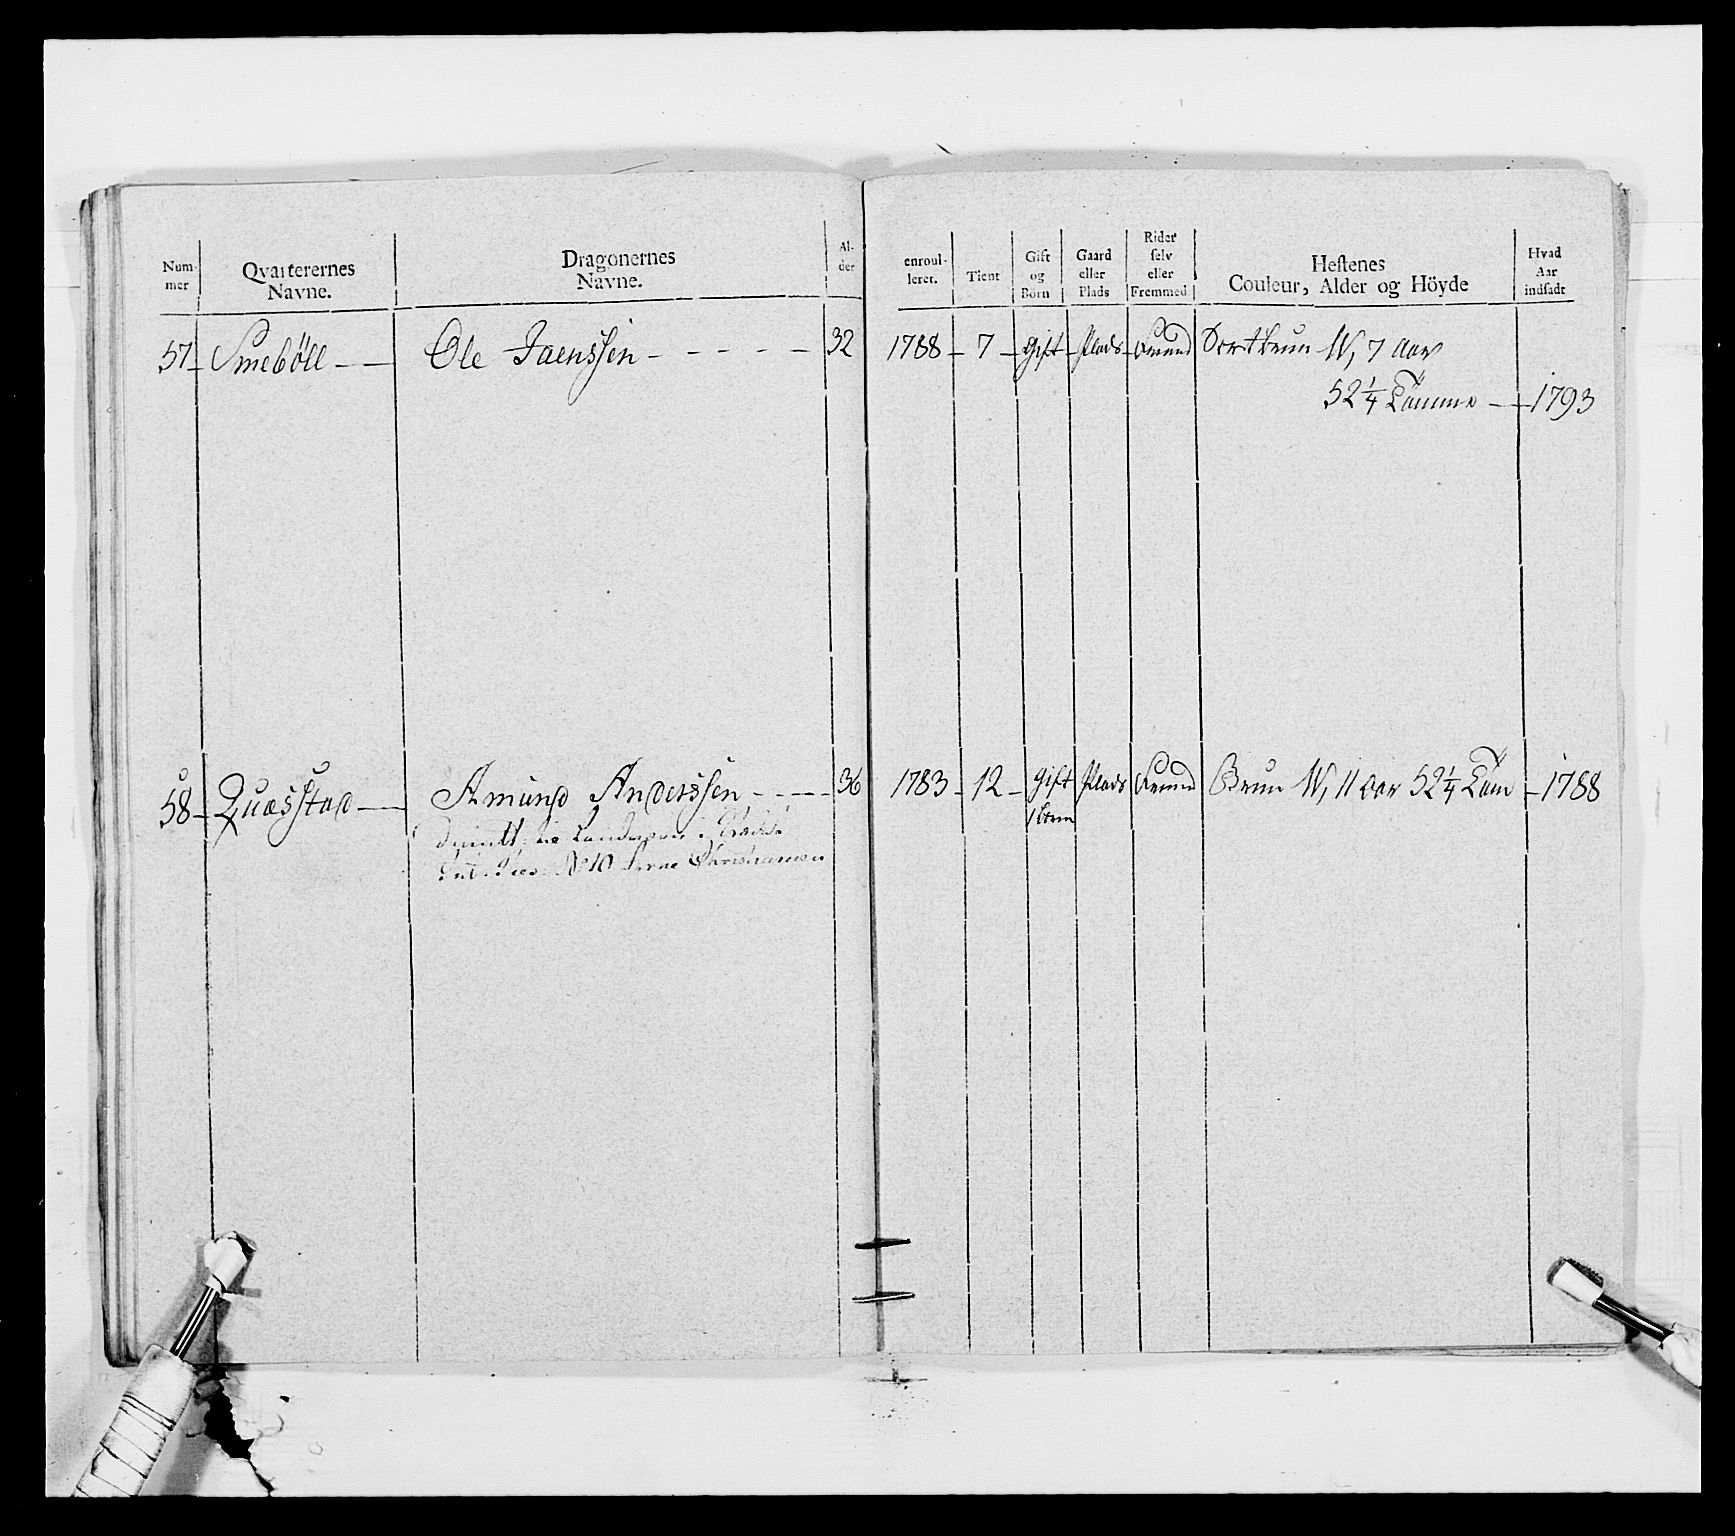 Num- mer
Qvarterernes Navne.
Dragonernes Navne.
Al- der
enroul- leret.
Tient
Gift og Börn
Gaard eller Plads
Rider selv eller Fremmed
Hestenes Couleur, Alder og Höyde
Hvad Aar indsadt
57 Smeböll Ole Jaenssen 32 1788 7 gift Plads Fremd Sortbrun W, 7 aar
52 1/4 Tomme 1793
58 Quæstad Amund Anderssen 36 1783 12 gift Plads Fremd Brun W, 11 aar 52 1/4 Tom 1788
1 barn
No 10 Arne Christiansen